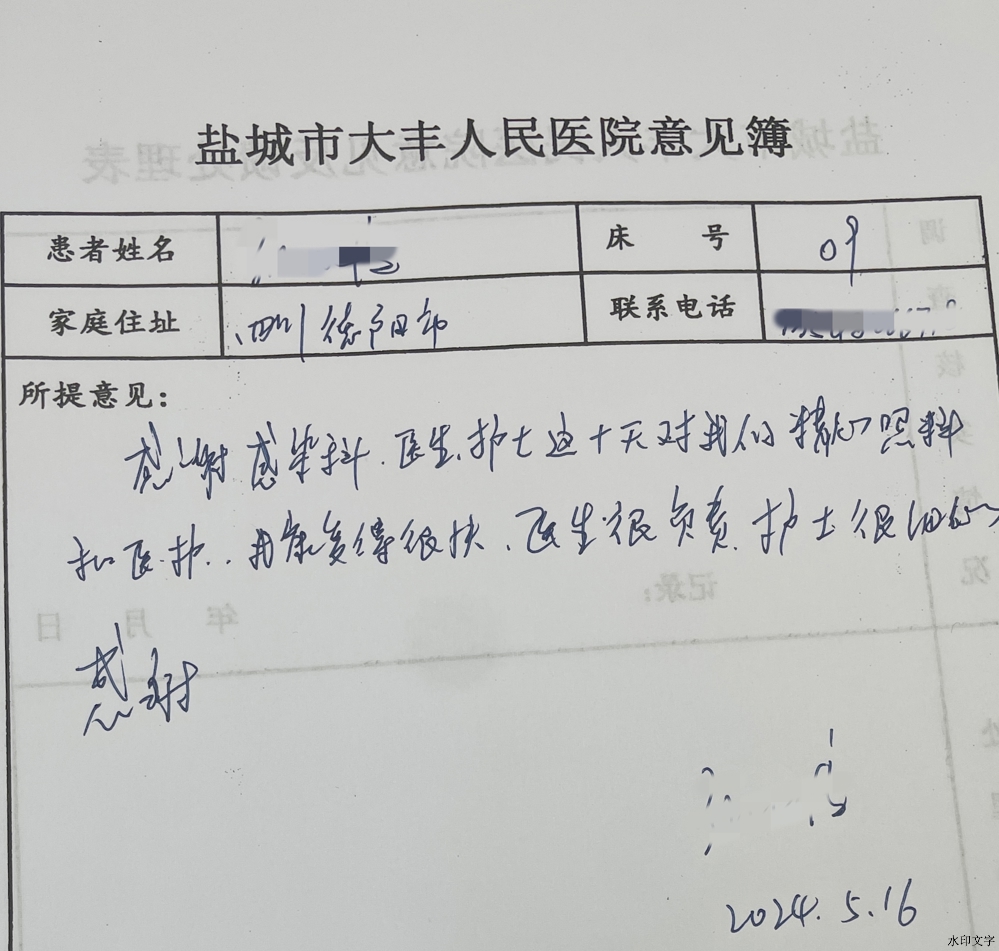 盐城市大丰人民医院意见簿
患者姓名
床 号 09
家庭住址 四川德阳
联系电话
所提意见：
感谢感染科.医生.护士这十天对我们精心照料
和医护..康复得很快.医生很负责.护士很细心
感谢
2024.5.16
水印文字